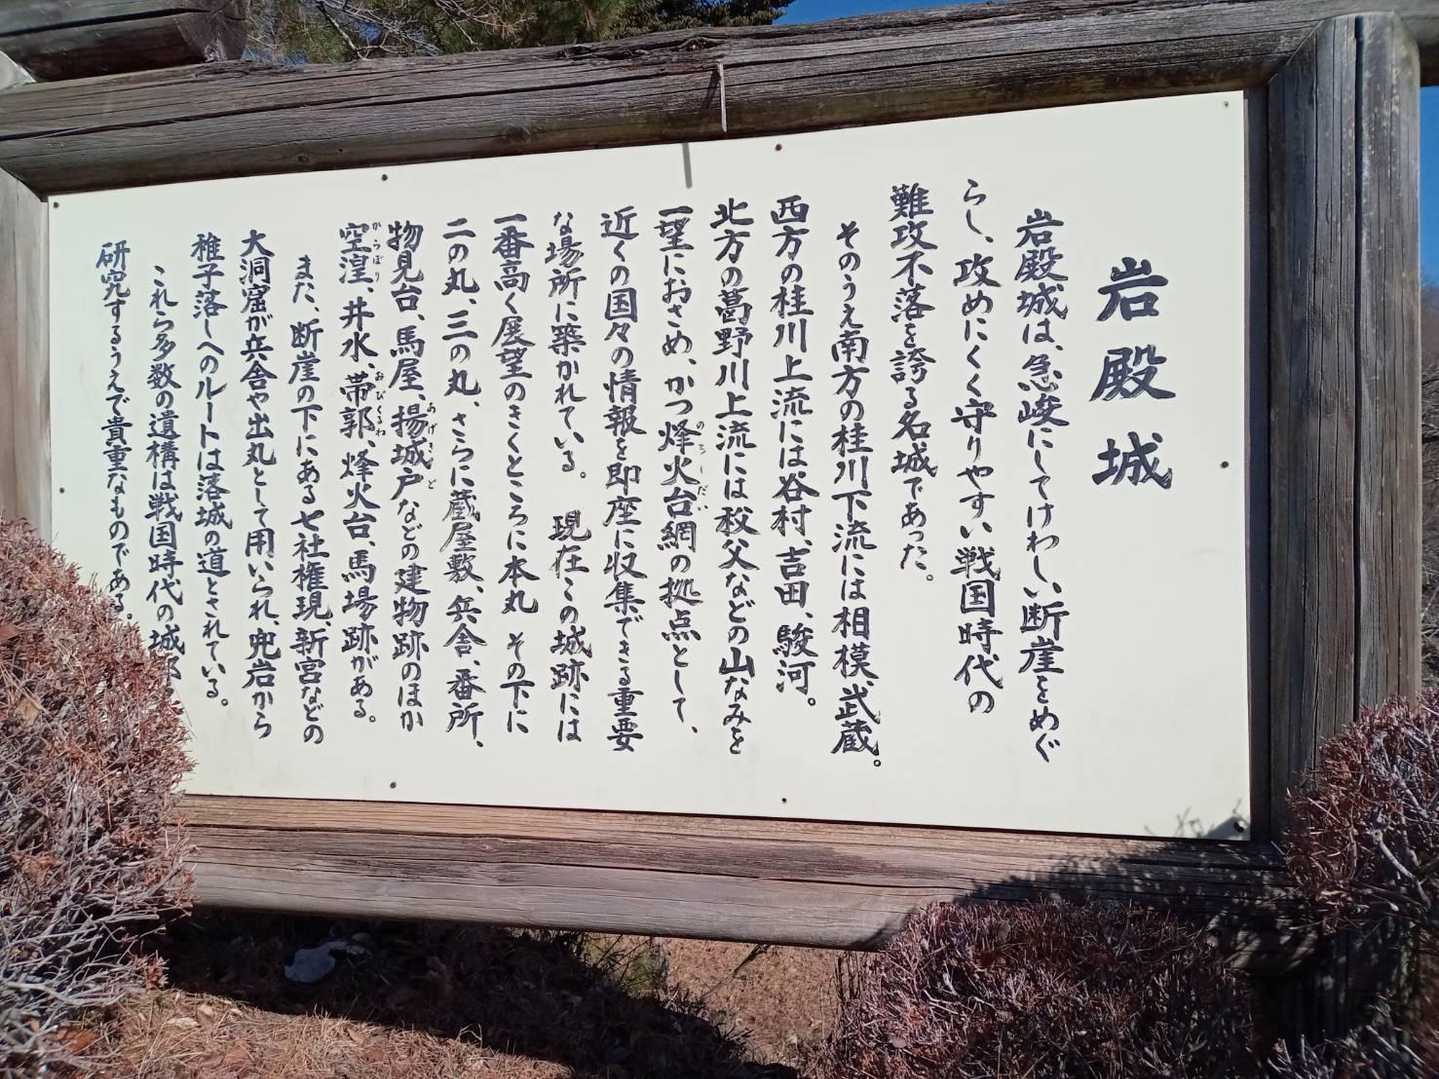 岩殿城
岩殿城は、急峻にしてけわしい断崖をめぐ
らし、攻めにくく守りやすい戦国時代の
難攻不落を誇る名城であった。
そのうえ南方の桂川下流には相模、武蔵。
西方の桂川上流には谷村、吉田、駿河。
北方の葛野川上流には秩父などの山なみを
一望におさめ、かつ烽火台網の拠点として、
のろしだい
近くの国々の情報を即座に収集できる重要
な場所に築かれている。 現在この城跡には
一番高く展望のきくところに本丸 その下に
二の丸、三の丸、さらに蔵屋敷、兵舎、番所、
物見台、馬屋、揚城戸などの建物跡のほか
あげきど
空湟、井水、帯郭、烽火台、馬場跡がある。
からぼり
おびくるわ
また、断崖の下にある七社権現、新宮などの
大洞窟が兵舎や出丸として用いられ、兜岩から
稚子落しへのルートは落城の道とされている。
これら多数の遺構は戦国時代の城郭
研究するうえで貴重なものである。